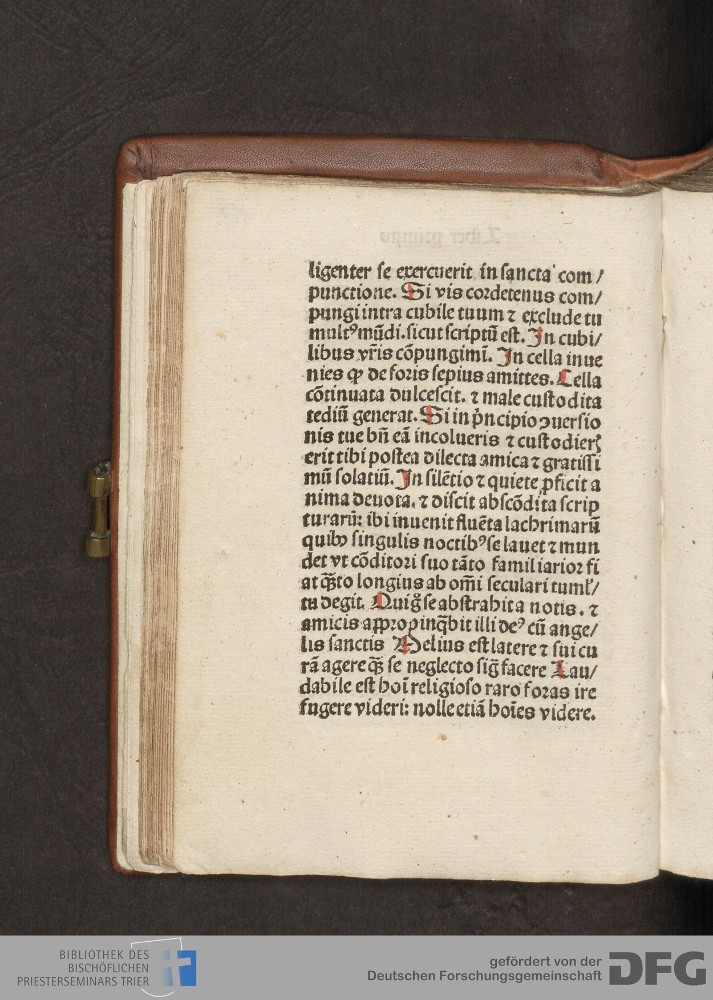 ligenter se exercuerit in sancta com/
punctione. Si vis cordetenus com/
pungi intra cubile tuum ⁊ exclude tu
multꝰ mũdi. sicut scriptũ est. In cubi/
libus vr̃is cõpungimĩ. In cella inue
nies ꝙ de foris sepius amittes. Cella
cõtinuata dulcescit. ⁊ male custodita
tediũ generat. Si in p̃ncipio ꝯuersio
nis tue bñ eã incolueris ⁊ custodierꝭ
erit tibi postea dilecta amica ⁊ gratissi
mũ solatiũ. In silẽtio ⁊ quiete ꝓficit a
nima deuota. ⁊ discit abscõdita scrip
turarũ: ibi inuenit fluẽta lachrimarũ
quibꝰ singulis noctibꝰ se lauet ⁊ mun
det vt cõditori suo tãto familiarior fi
at q̃sto longius ab om̃i seculari tuml̃/
tu degit. Qui g̊ se abstrahit a notis. ⁊
amicis appropinq̃bit illi deꝰ cũ ange/
lis sanctis Melius est latere ⁊ sui cu
rã agere q̃ꝫ se neglecto sig̃ facere Lau/
dabile est hoĩ religioso raro foras ire
fugere videri: nolle etiã hoĩes videre.
BIBLIOTHEK DES
BISCHÖFLICHEN
PRIESTERSEMINARS TRIER
gefördert von der
Deutschen Forschungsgemeinschaft
DFG